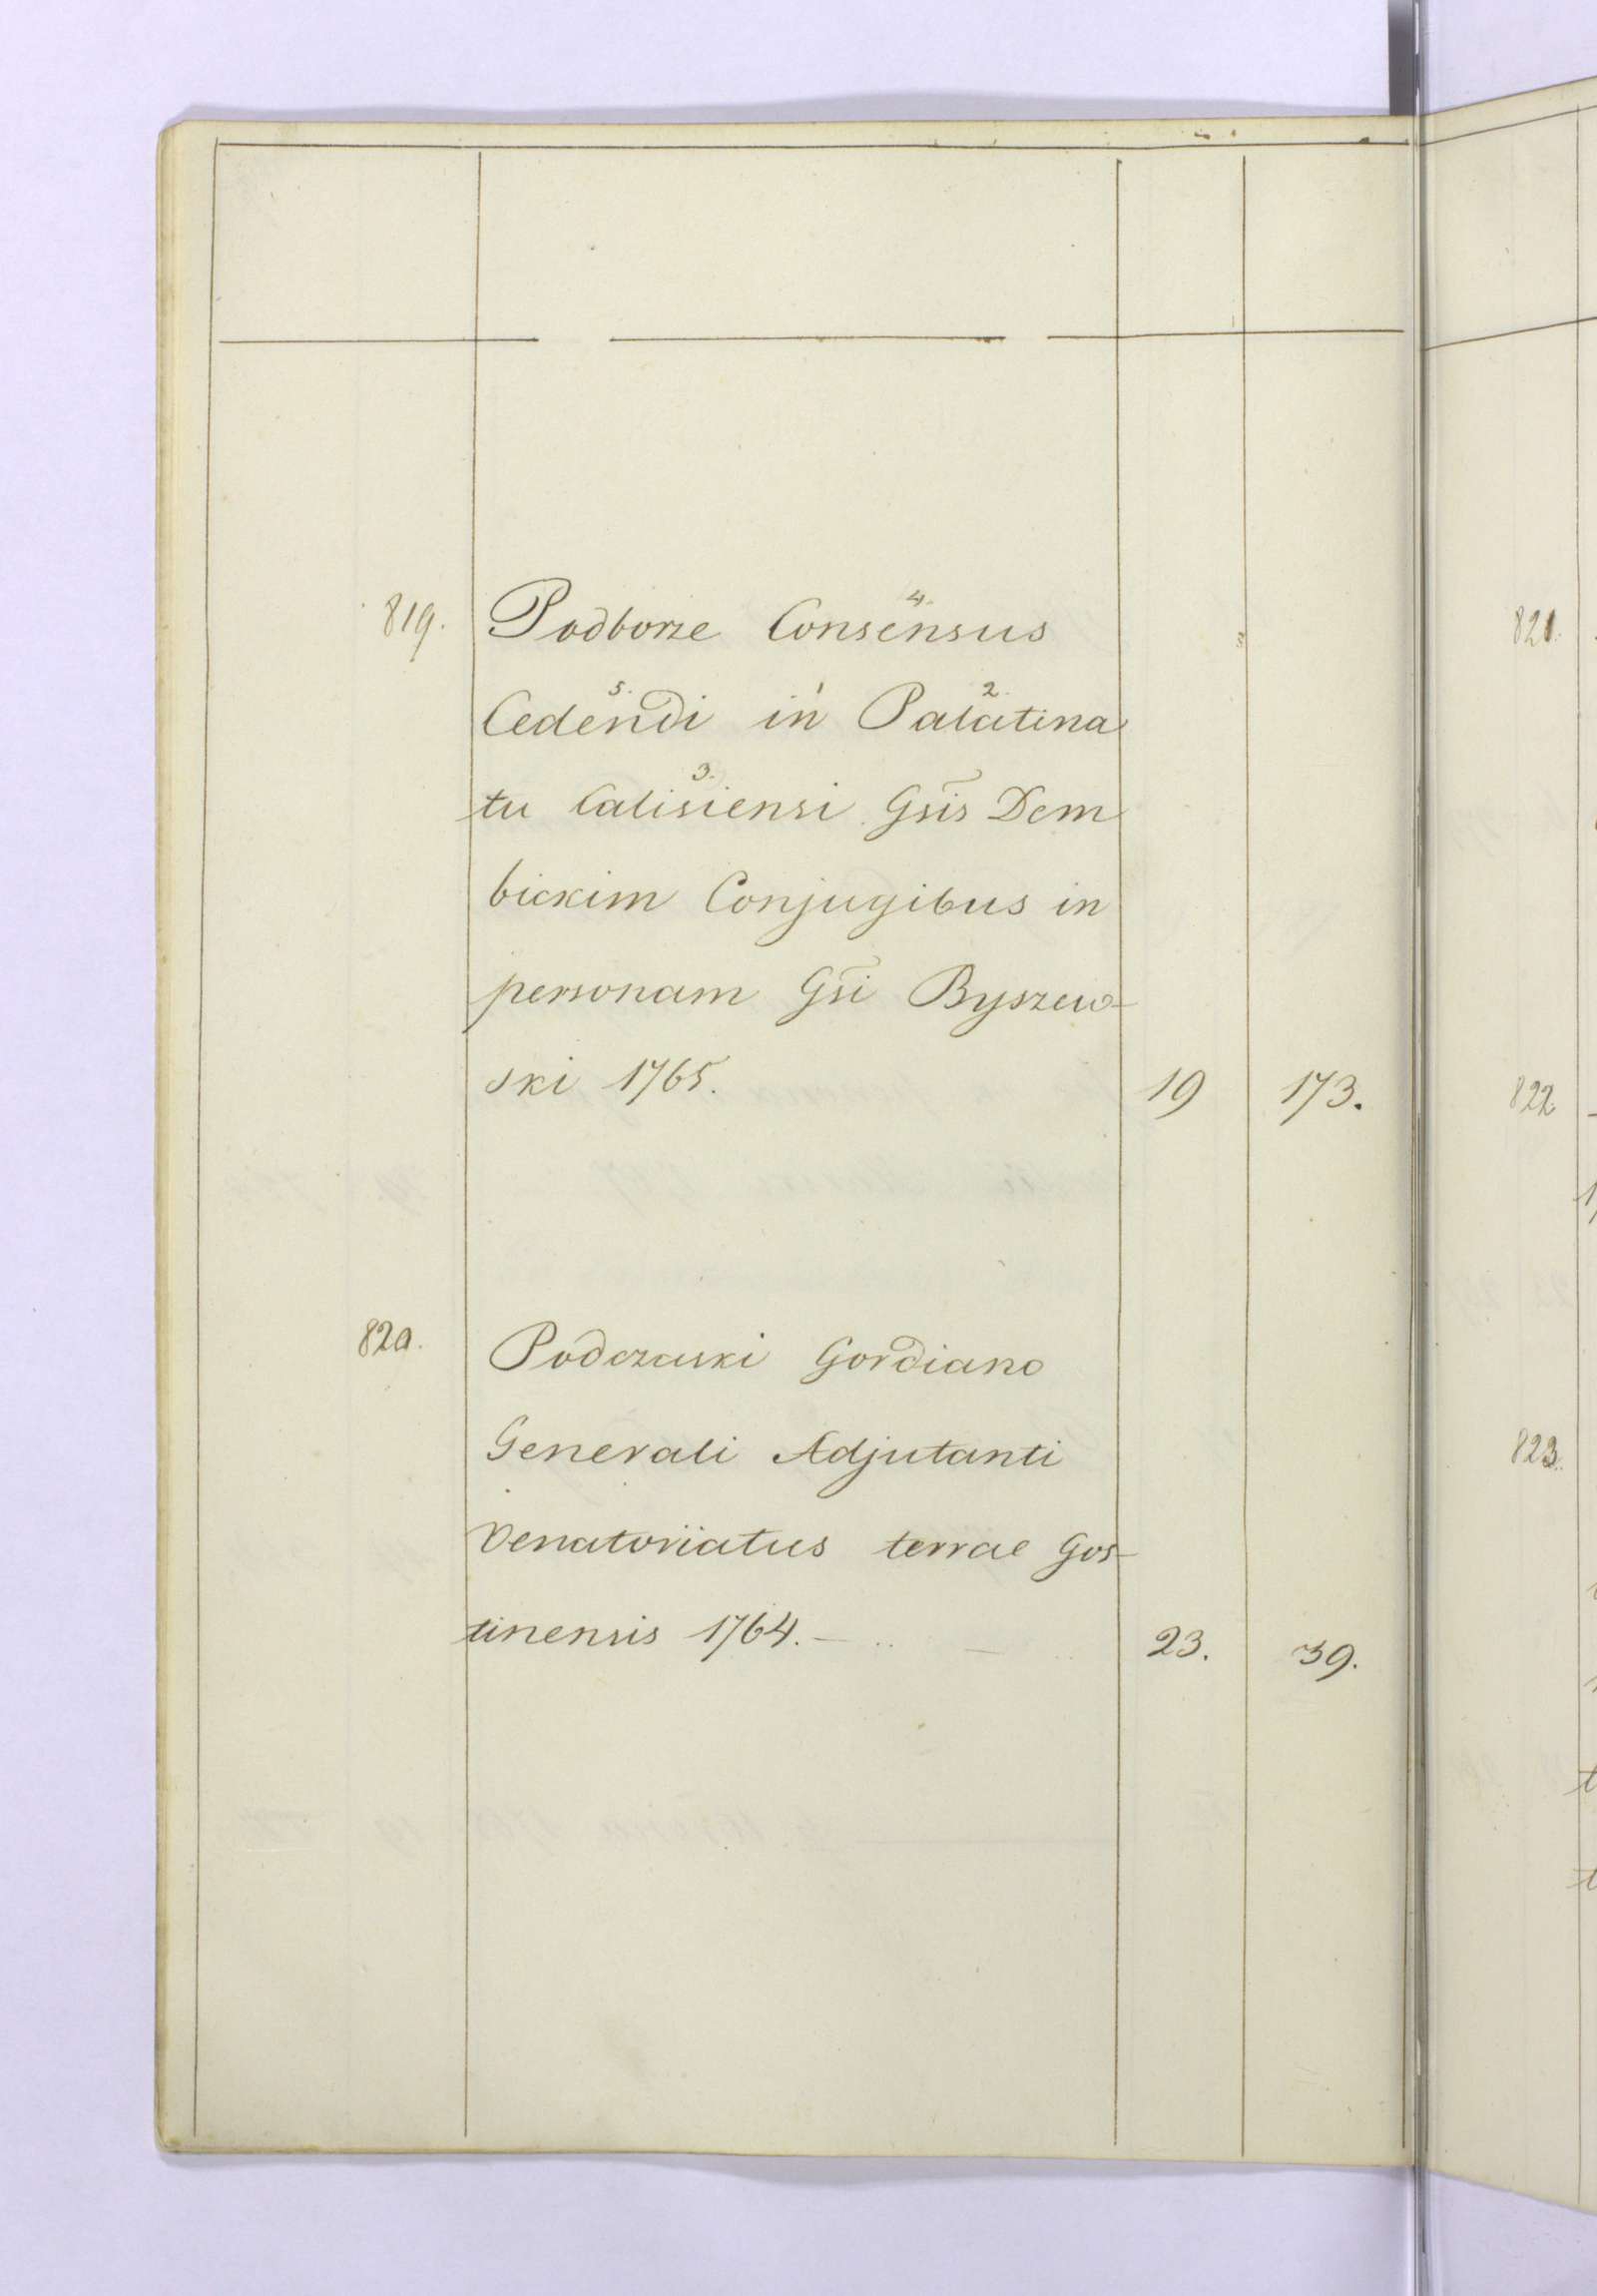 819. Podborze Consensus
Cedendi in Palatina
tu Calisiensi Gsis Dem
bickim Conjugibus in
personam Gsi Byszew-
ski 1765. 19 173.
820. Podczaski Gordiano
Generali Adjutanti
Venatoriatus terrae Gos-
tinensis 1764. 23. 39.
821.
822.
823.